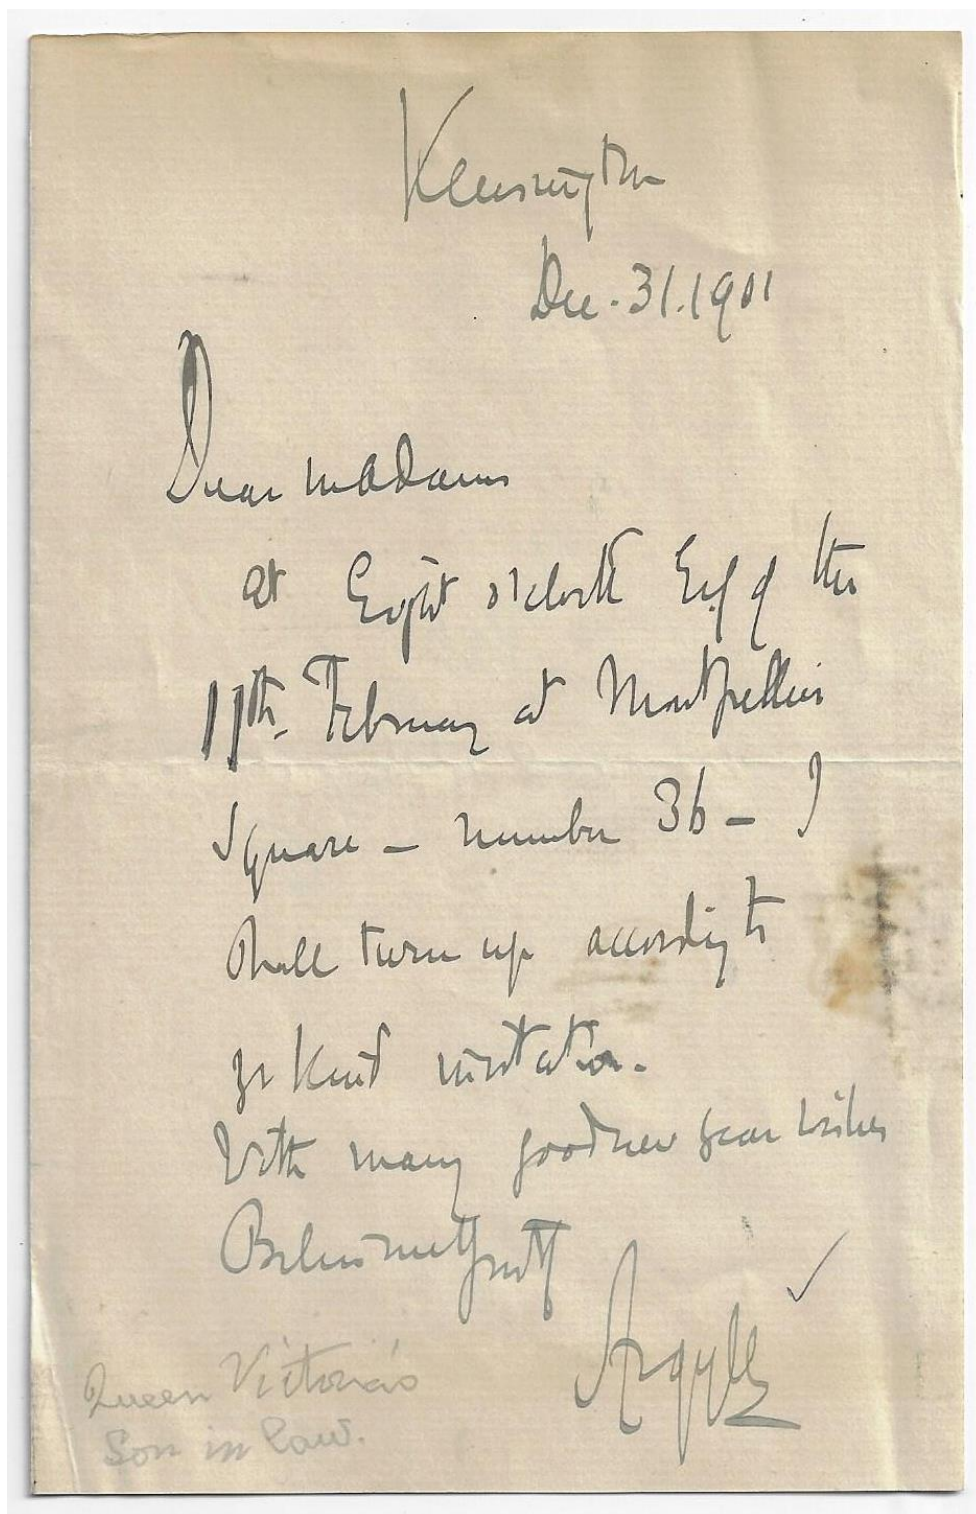 Kensington
Dec. 31. 1901
Dear Madam
at Eight o'clock of the
11th February at Montpellier
Square – number 36 – I
shall turn up according to
yr kind invitation.
With many good new year wishes
Believe me
Argyll
Queen Victoria's
Son in law.